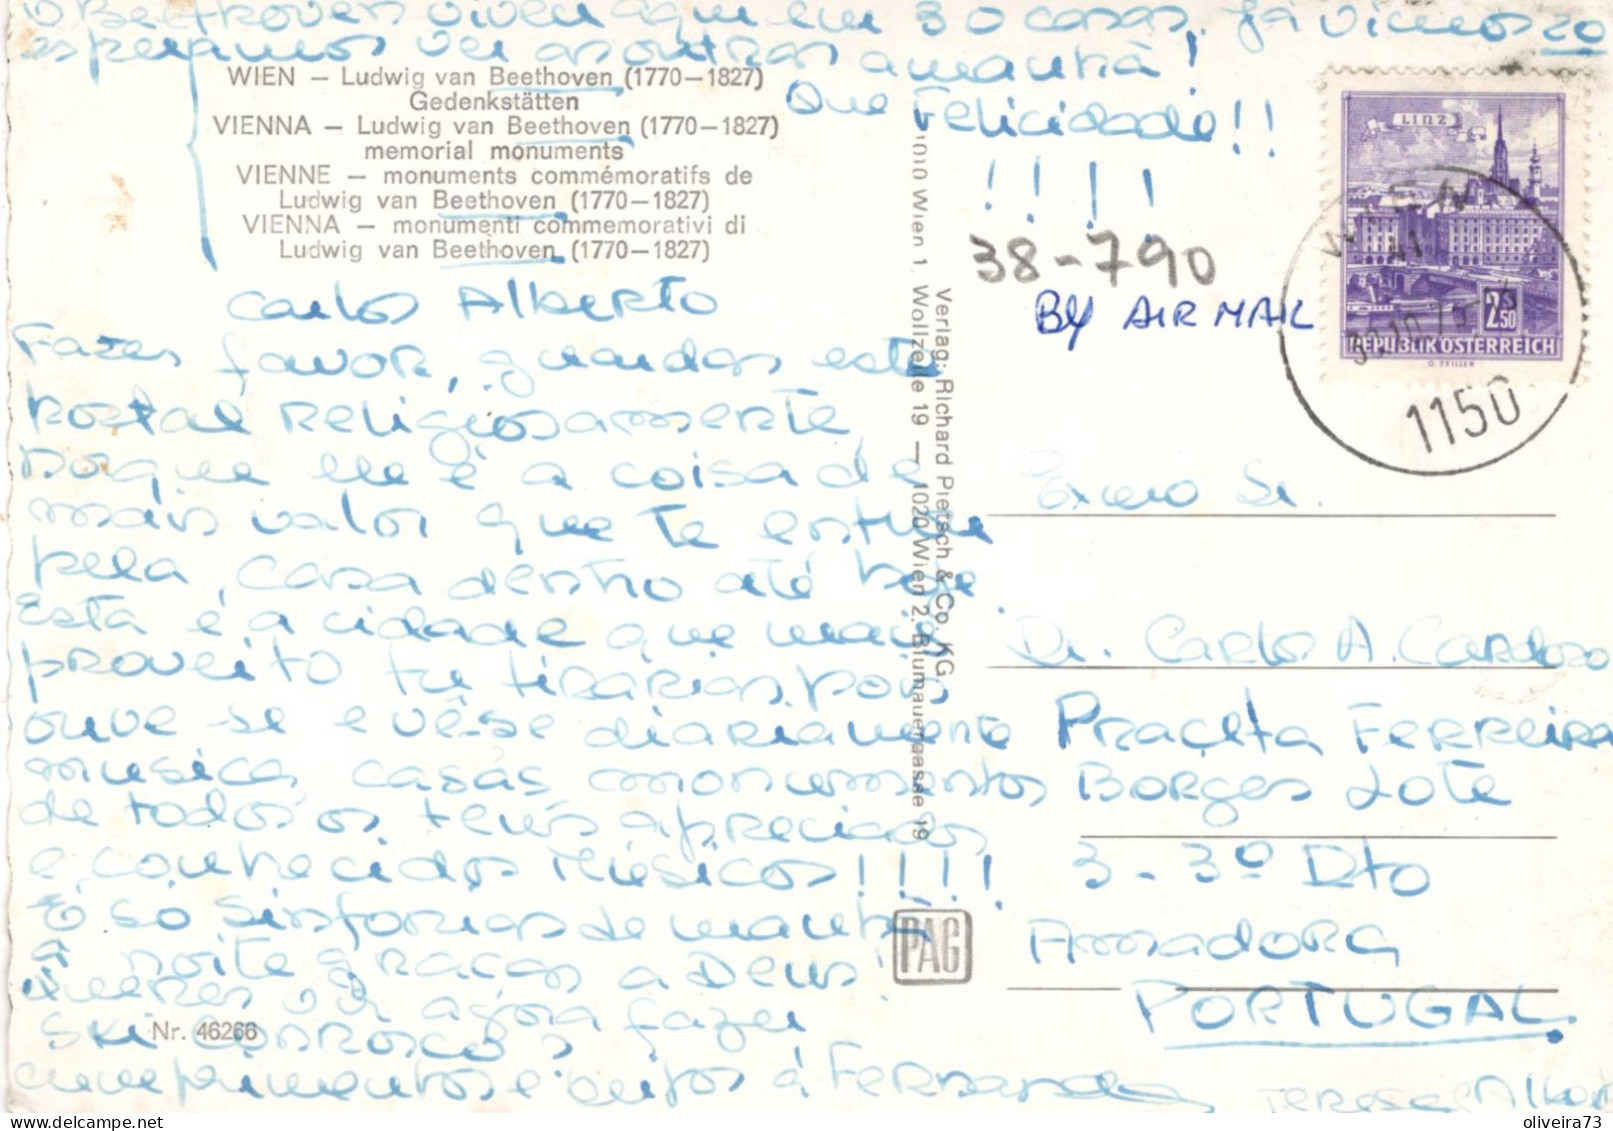 O Beethoven viveu aqui em 30 casas, já vimos 20
esperamos ver as outras amanhã!
Que Felicidade!!
!!!!
WIEN – Ludwig van Beethoven (1770–1827)
Gedenkstätten
VIENNA – Ludwig van Beethoven (1770–1827)
memorial monuments
VIENNE – monuments commémoratifs de
Ludwig van Beethoven (1770–1827)
VIENNA – monumenti commemorativi di
Ludwig van Beethoven (1770–1827)
Carlos Alberto
Fazes favor, guardas este
postal religiosamente
porque ele é a coisa de
mais valor que te entrou
pela casa dentro até hoje.
Esta é a cidade que mais
proveito tu tirarias pois
ouve-se e vê-se diariamente
musica, casas, monumentos
de todos os teus apreciados
e conhecidos Músicos!!!!
É só sinfonias de manhã
à noite graças a Deus!
Queres vir agora fazer
ski conosco?
cumprimentos e beijos à Fernanda
Teresa e Alberto
Nr. 46266
Verlag: Richard Pietsch & Co. KG.
1010 Wien 1. Wollzeile 19 — 1020 Wien 2. Blumauergasse 19
PAG
38-790
BY AIR MAIL
LINZ
2 S 50
REPUBLIK ÖSTERREICH
O. ZEILLER
WIEN
30.10.75
1150
Exmo Sr.
Dr. Carlos A. Cardoso
Praceta Ferreira
Borges Lote
3 - 3º Dto
Amadora
PORTUGAL
oliveira73